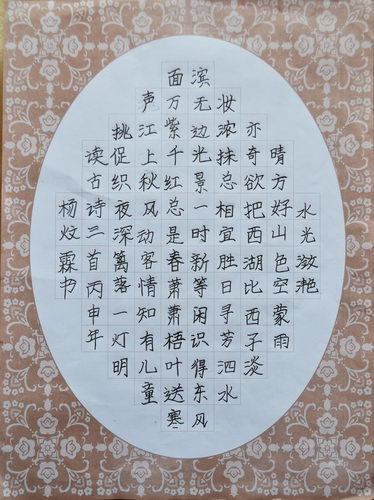 水光潋滟
晴方好山色空蒙雨
亦奇欲把西湖比西子淡
妆浓抹总相宜胜日寻芳泗水
滨无边光景一时新等闲识得东风
面万紫千红总是春萧萧梧叶送寒
声江上秋风动客情知有儿童
挑促织夜深篱落一灯明
读古诗三首丙申年
杨炆霖书